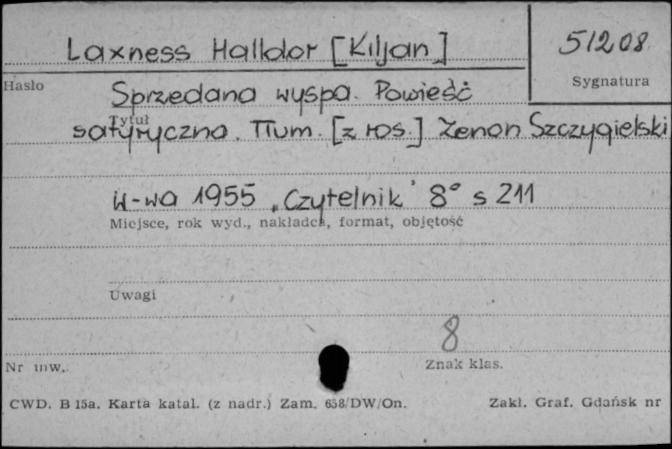 Laxness Halldor [Kiljan]
51208
Hasło
Sygnatura
Sprzedana wyspa. Powieść
Tytuł
satyryczna. Tłum. [z ros.] Zenon Szczygielski
W-wa 1955 „Czytelnik" 8° s 211
Miejsce, rok wyd., nakładca, format, objętość
Uwagi
8
Nr inw.
Znak klas.
CWD. B 15a. Karta katal. (z nadr.) Zam. 658/DW/On.
Zakł. Graf. Gdańsk nr